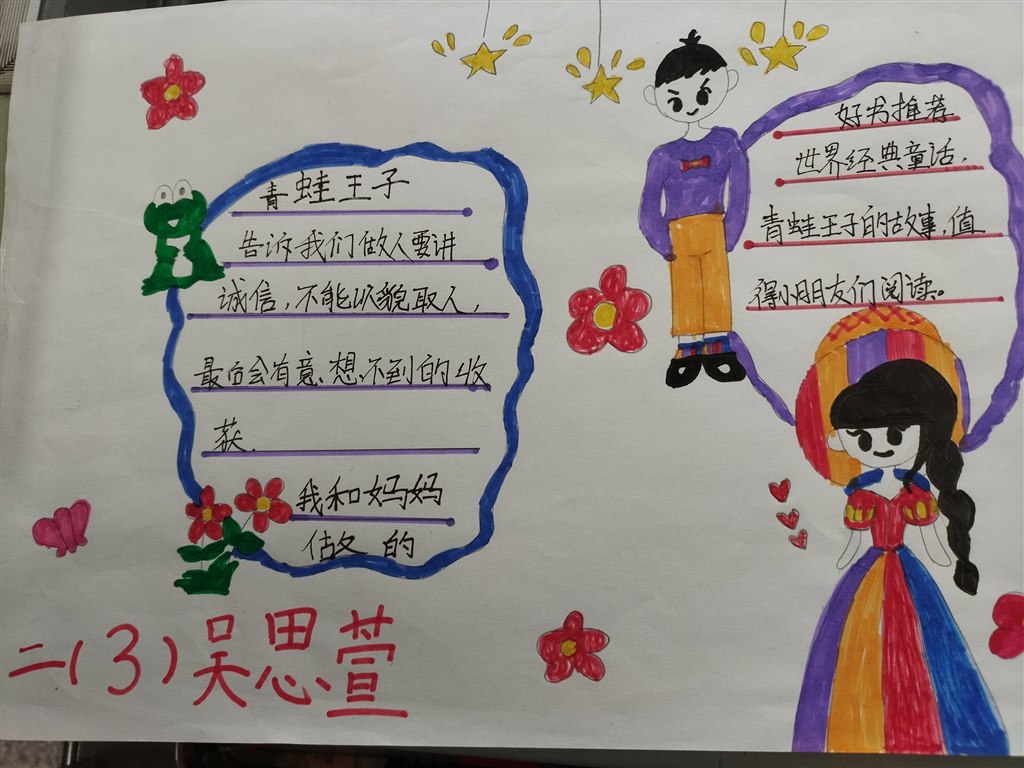 青蛙王子
告诉我们做人要讲
诚信，不能以貌取人，
最后会有意想不到的收
获.
我和妈妈
做的
好书推荐
世界经典童话，
青蛙王子的故事，值
得小朋友们阅读。
二(3)吴思萱